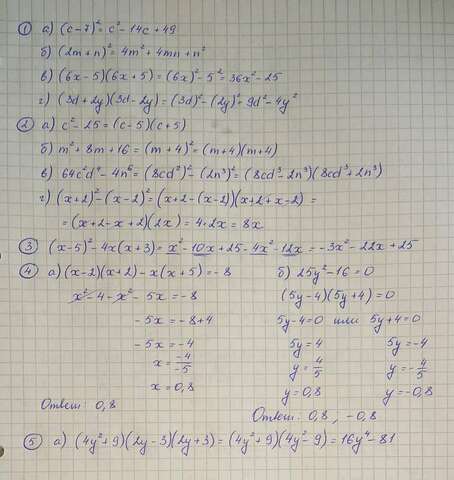 ① а) (c-7)² = c² - 14c + 49
б) (2m+n)² = 4m² + 4mn + n²
в) (6x-5)(6x+5) = (6x)² - 5² = 36x² - 25
г) (3d+2y)(3d-2y) = (3d)² - (2y)² = 9d² - 4y²
② а) c² - 25 = (c-5)(c+5)
б) m² + 8m + 16 = (m+4)² = (m+4)(m+4)
в) 64c²d⁶ - 4n⁶ = (8cd³)² - (2n³)² = (8cd³ - 2n³)(8cd³ + 2n³)
г) (x+2)² - (x-2)² = (x+2-(x-2))(x+2+x-2) =
= (x+2-x+2)(2x) = 4·2x = 8x
③ (x-5)² - 4x(x+3) = x² - 10x + 25 - 4x² - 12x = -3x² - 22x + 25
④ а) (x-2)(x+2) - x(x+5) = -8
x² - 4 - x² - 5x = -8
-5x = -8+4
-5x = -4
x = -4/-5
x = 0,8
Ответ: 0,8
б) 25y² - 16 = 0
(5y-4)(5y+4) = 0
5y-4=0 или 5y+4=0
5y = 4 5y = -4
y = 4/5 y = -4/5
y = 0,8 y = -0,8
Ответ: 0,8, -0,8
⑤ а) (4y²+9)(2y-3)(2y+3) = (4y²+9)(4y²-9) = 16y⁴ - 81